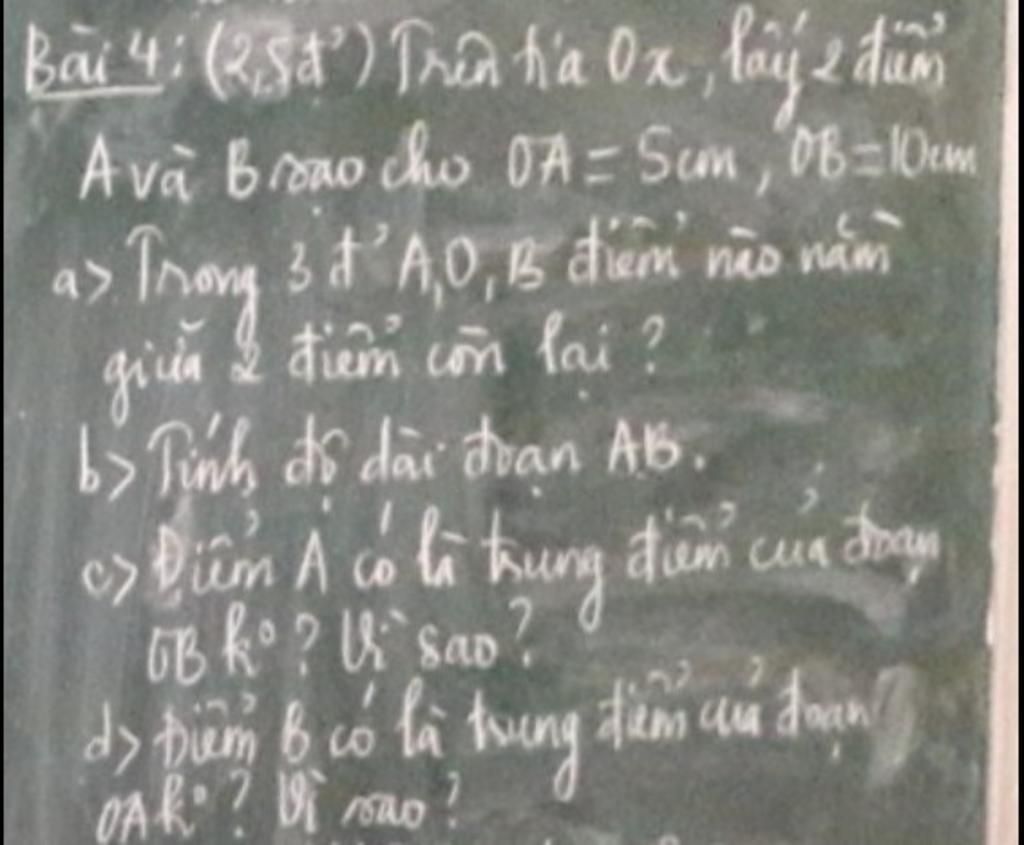 Bài 4: (2,5đ') Trên tia Ox, lấy 2 điểm
A và B sao cho OA = 5cm, OB = 10cm
a> Trong 3 đ' A, O, B điểm nào nằm
giữa 2 điểm còn lại?
b> Tính độ dài đoạn AB.
c> Điểm A có là trung điểm của đoạn
OB k°? Vì sao?
d> Điểm B có là trung điểm của đoạn
OA k°? Vì sao?